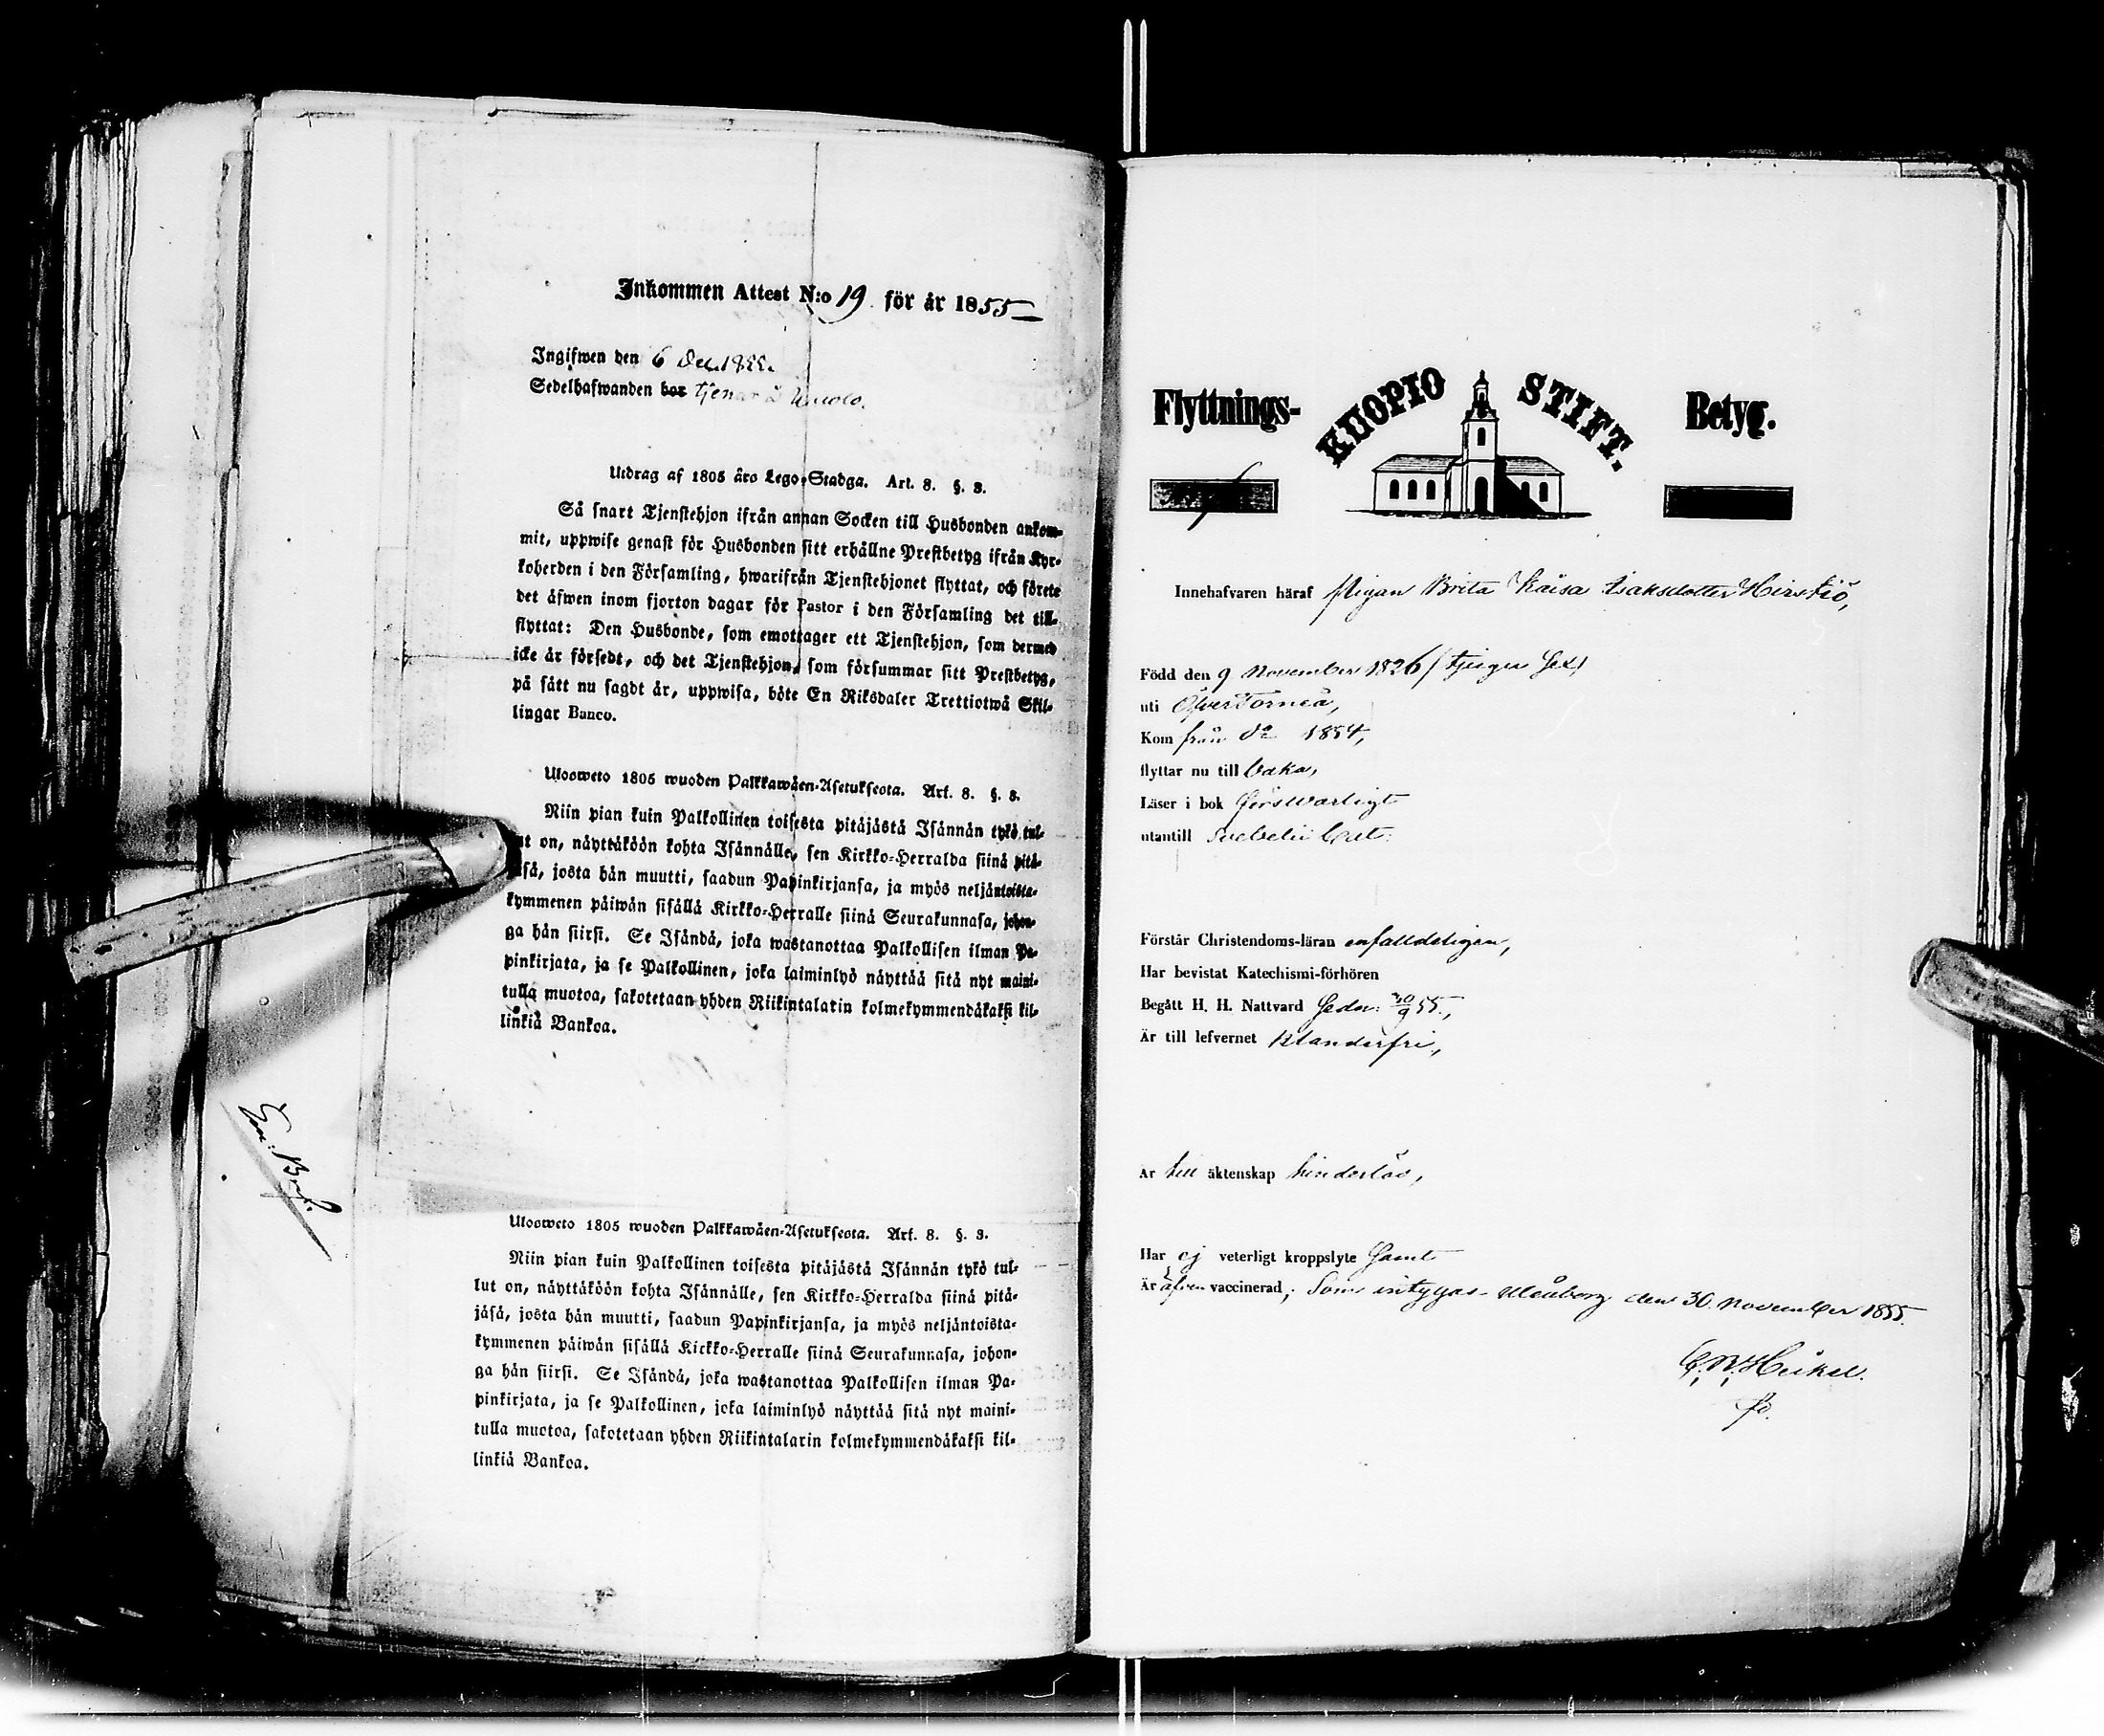 Inkommen Attest N:o 19 för år 1855
Ingifwen den 6 Dec. 1855.
Sedelhafwanden bor tjenar å
Utdrag af 1805 års Lego-Stadga. Art. 8. §. 3.
Så snart Tjenstehjon ifrån annan Socken till Husbonden ankom-
mit, uppwise genast för Husbonden sitt erhållne Prestbetyg ifrån Kyr-
koherden i den Församling, hwarifrån Tjenstehjonet flyttat, och förete
det äfwen inom fjorton dagar för Pastor i den Församling det till-
flyttat: Den Husbonde, som emottager ett Tjenstehjon, som dermed
icke är försedt, och det Tjenstehjon, som försummar sitt Prestbetyg,
på sätt nu sagdt är, uppwisa, böte En Riksdaler Trettiotwå Skil-
lingar Banco.
Ulosweto 1805 wuoden Palkkawäen-Asetuksesta. Art. 8. §. 3.
Niin pian kuin Palkollinen toisesta pitäjästä Isännän tykö tul-
ut on, näyttäköön kohta Isännälle, sen Kirkko-Herralda siinä pitä-
isä, josta hän muutti, saadun Papinkirjansa, ja myös neljäntoista-
kymmenen päiwän sisällä Kirkko-Herralle siinä Seurakunnasa, johon-
ga hän siirsi. Se Isändä, joka wastanottaa Palkollisen ilman Pa-
pinkirjata, ja se Palkollinen, joka laiminlyö näyttää sitä nyt maini-
tulla muotoa, sakotetaan yhden Riikintalarin kolmekymmendäkaksi kil-
linkiä Bankoa.
Ulosweto 1805 wuoden Palkkawäen-Asetuksesta. Art. 8. §. 3.
Niin pian kuin Palkollinen toisesta pitäjästä Isännän tykö tul-
lut on, näyttäköön kohta Isännälle, sen Kirkko-Herralda siinä pitä-
jäsä, josta hän muutti, saadun Papinkirjansa, ja myös neljäntoista-
kymmenen päiwän sisällä Kirkko-Herralle siinä Seurakunnasa, johon-
ga hän siirsi. Se Isändä, joka wastanottaa Palkollisen ilman Pa-
pinkirjata, ja se Palkollinen, joka laiminlyö näyttää sitä nyt maini-
tulla muotoa, sakotetaan yhden Riikintalarin kolmekymmendäkaksi kil-
linkiä Bankoa.
Flyttnings- KUOPIO STIFT. Betyg.
Innehafvaren häraf Pigan Brita Kaisa Isaksdotter Hirstiö,
Född den 9 November 1826 (tjugu sex)
uti Öfvertorneå,
Kom från do 1854,
flyttar nu till
Läser i bok försvarligt
utantill Svebelii Cat:
Förstår Christendoms-läran enfalldeligen,
Har bevistat Katechismi-förhören
Begått H. H. Nattvard sedn: 30/9 55.,
Är till lefvernet klanderfri,
Är till äktenskap hinderlös,
Har ej veterligt kroppslyte samt
Är äfven vaccinerad; Som intygas Uleåborg den 30 November 1855.
Heikel.